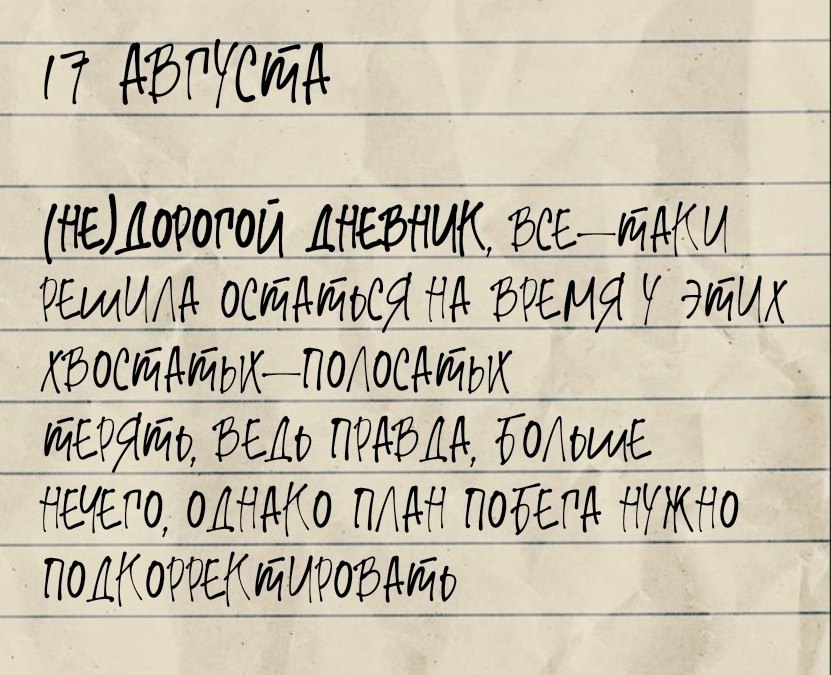 17 АВГУСТА
(НЕ)ДОРОГОЙ ДНЕВНИК, ВСЕ—ТАКИ
РЕШИЛА ОСТАТЬСЯ НА ВРЕМЯ У ЭТИХ
ХВОСТАТЫХ—ПОЛОСАТЫХ
ТЕРЯТЬ, ВЕДЬ ПРАВДА, БОЛЬШЕ
НЕЧЕГО, ОДНАКО ПЛАН ПОБЕГА НУЖНО
ПОДКОРРЕКТИРОВАТЬ